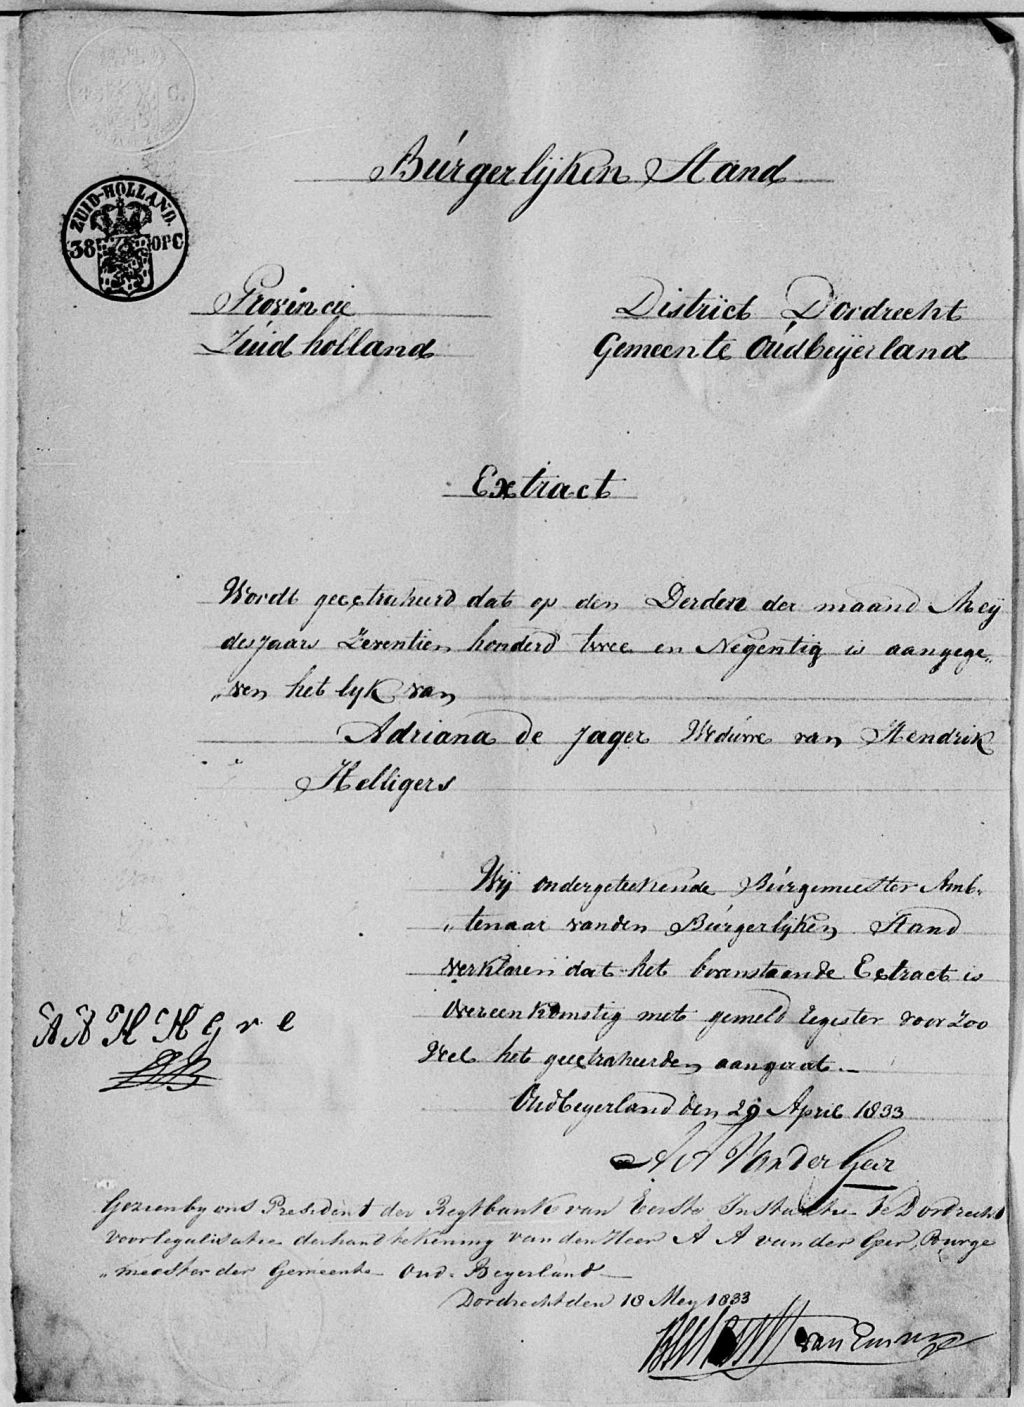 Burgerlijken Stand
ZUID-HOLLAND.
38 OPC
Provincie
Zuid holland
District Dordrecht
Gemeente Oudbeijerland
Extract
Wordt geextraheerd dat op den Derden der maand Meij
des jaars Zeventien honderd twee en Negentig is aangege„
„ven het lijk van
Adriana de Jager Weduwe van Hendrik
Helligers
Wij ondergeteekende Burgemeester Amb„
„tenaar vanden Burgerlijken Stand
verklaren dat het bovenstaande Extract is
Overeenkomstig met gemeld register voor zoo
Veel het geextraheerden aangaat.—
Oudbeyerland den 29 April 1833
A A Van der Geer
A A H H G r e
Gezien by ons President der Regtbank van Eerste Instantie te Dordrecht
voor legalisatie der handtekening van den Heer A A van der Geer, Burge
„meester der Gemeente Oud-Beyerland
Dordrecht den 18 Mey 1833